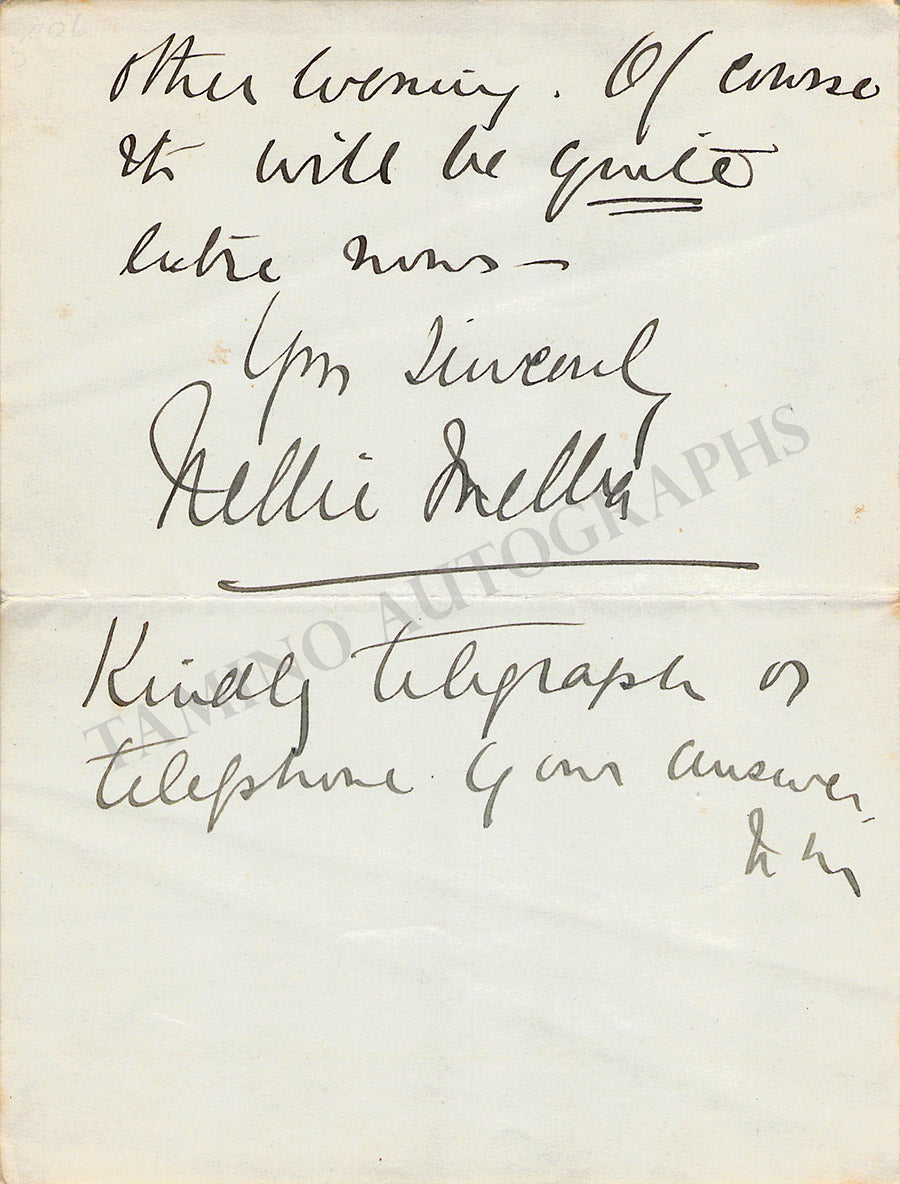 other evening. Of course
it will be quite
entre nous —
Yrs Sincerely
Nellie Melba
Kindly telegraph or
telephone your answer.
N M
TAMINO AUTOGRAPHS